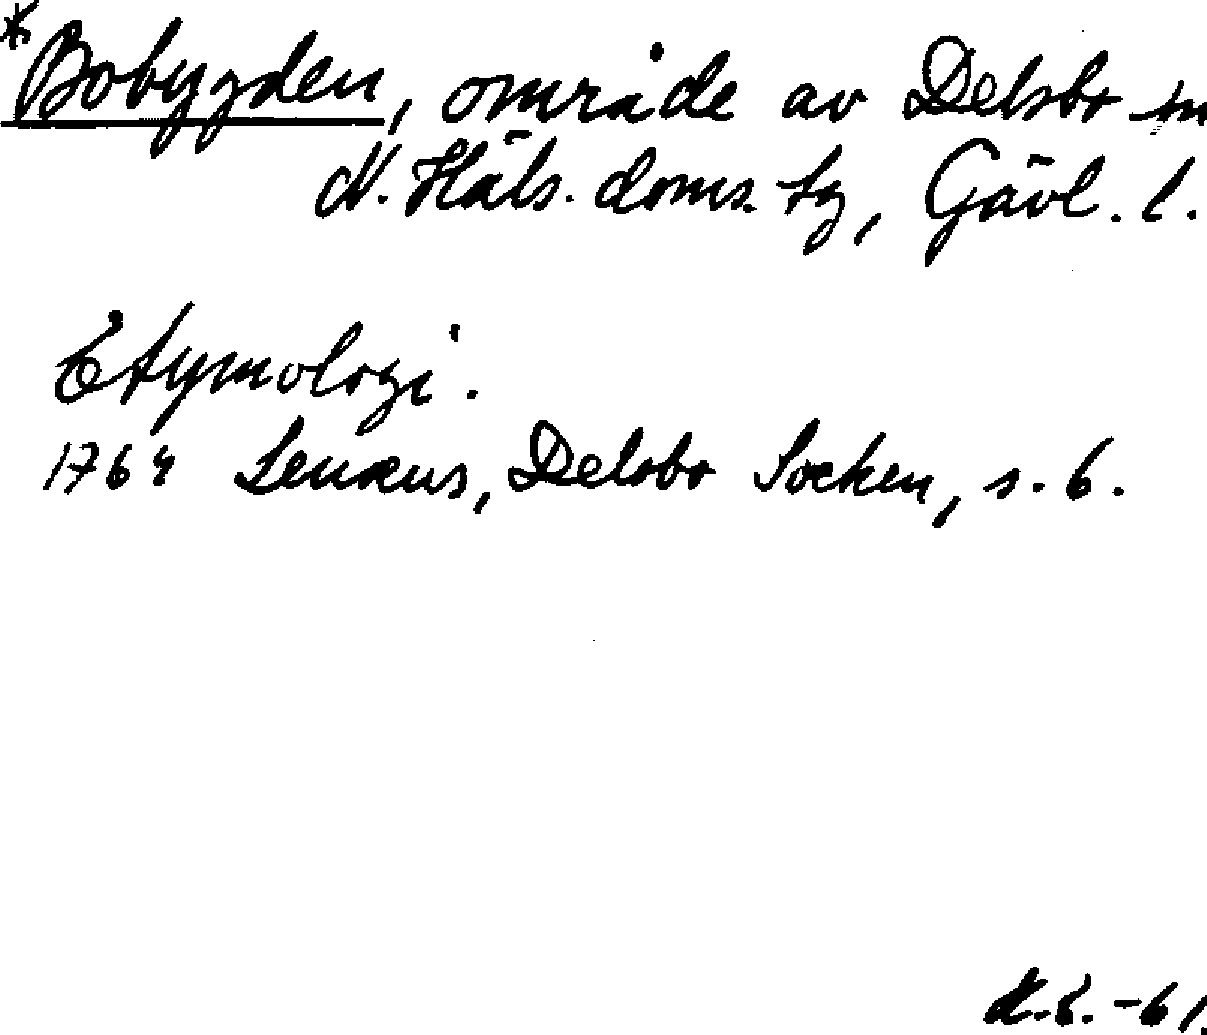 *Bobygden, område av Delsbo sn
N. Häls. doms. tg, Gävl. l.
Etymologi.
1764 Lenæus, Delsbo Socken, s. 6.
-61.